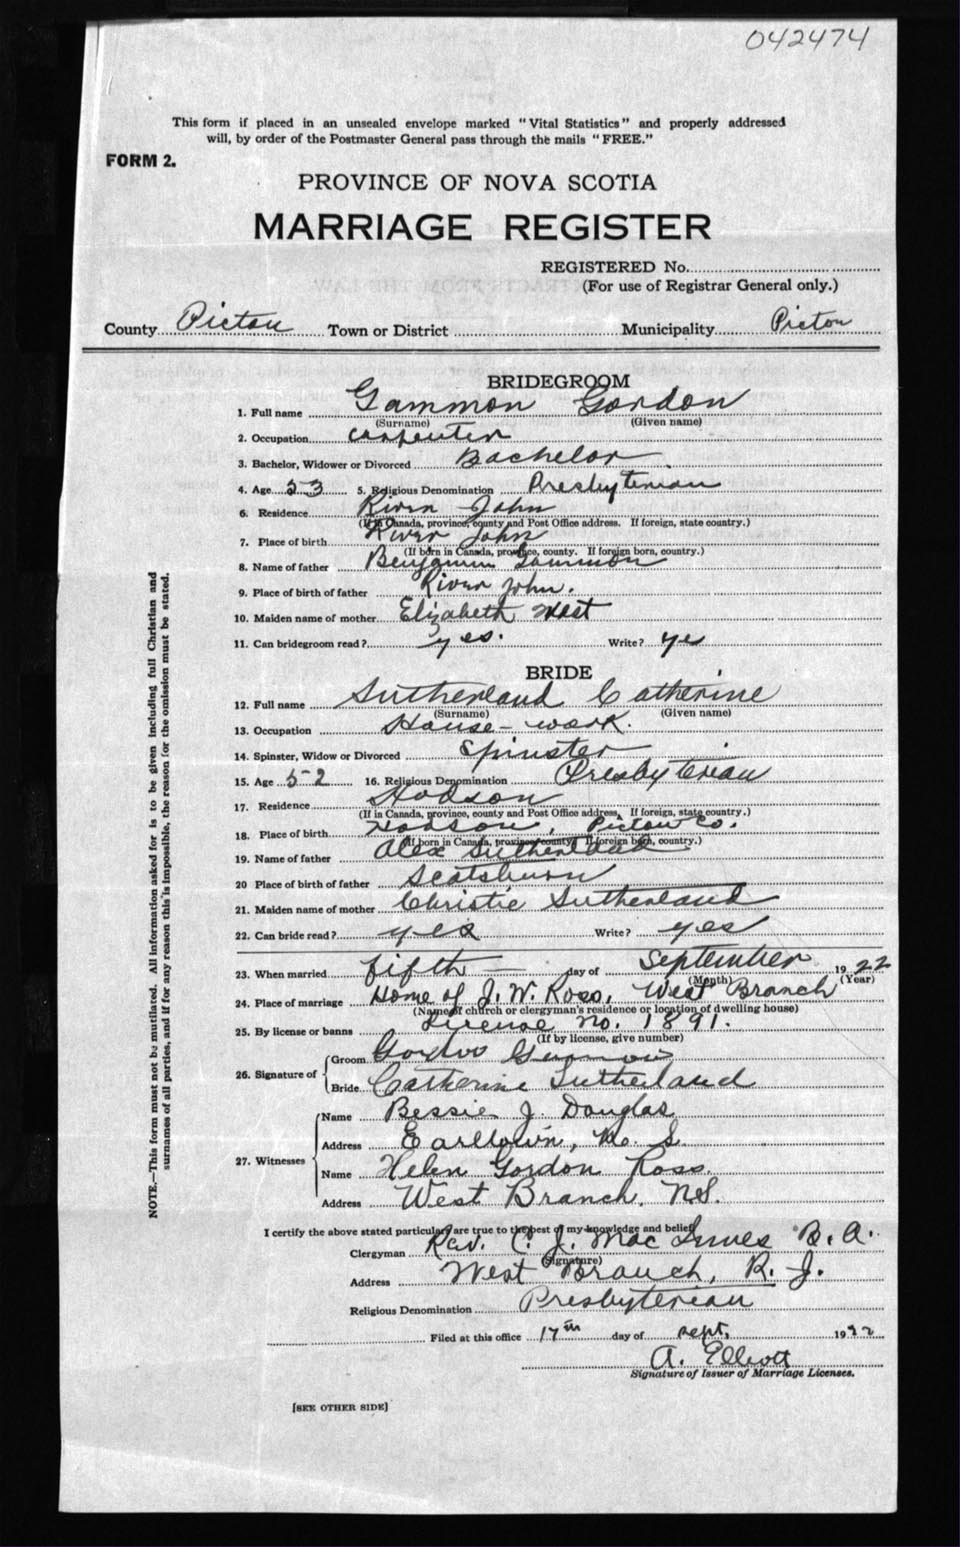 042474
This form if placed in an unsealed envelope marked "Vital Statistics" and properly addressed
will, by order of the Postmaster General pass through the mails "FREE."
FORM 2.
PROVINCE OF NOVA SCOTIA
MARRIAGE REGISTER
REGISTERED No.
(For use of Registrar General only.)
County Pictou Town or District Municipality Pictou
BRIDEGROOM
1. Full name Gammon Gordon
(Surname) (Given name)
2. Occupation carpenter
3. Bachelor, Widower or Divorced Bachelor
4. Age 53 5. Religious Denomination Presbyterian
6. Residence River John
(If in Canada, province, county and Post Office address. If foreign, state country.)
7. Place of birth River John
(If born in Canada, province, county. If foreign born, country.)
8. Name of father Benjamin Gammon
9. Place of birth of father River John.
10. Maiden name of mother Elizabeth West
11. Can bridegroom read? yes. Write? yes
BRIDE
12. Full name Sutherland Catherine
(Surname) (Given name)
13. Occupation House-work.
14. Spinster, Widow or Divorced Spinster
15. Age 52 16. Religious Denomination Presbyterian
17. Residence Hodson
(If in Canada, province, county and Post Office address, If foreign, state country.)
18. Place of birth Hodson, Pictou Co.
(If born in Canada, province county. If foreign born, country.)
19. Name of father Alex Sutherland
20 Place of birth of father Scotsburn
21. Maiden name of mother Christie Sutherland
22. Can bride read? yes Write? yes
23. When married fifth day of September 1922
(Month) (Year)
24. Place of marriage Home of J. W. Ross, West Branch
(Name of church or clergyman's residence or location of dwelling house)
25. By license or banns License no. 1891.
(If by license, give number)
26. Signature of Groom Gordon Gammon
Bride Catherine Sutherland
27. Witnesses Name Bessie J. Douglas
Address Earltown, N. S
Name Helen Gordon Ross.
Address West Branch, N.S.
I certify the above stated particulars are true to the best of my knowledge and belief,
Clergyman Rev. C. J. MacInnes B. A.
(Signature)
Address West Branch, R. J.
Religious Denomination Presbyterian
Filed at this office 17th day of Sept, 1922
A. Elliott
Signature of Issuer of Marriage Licenses.
[SEE OTHER SIDE]
NOTE.—This form must not be mutilated. All information asked for is to be given including full Christian and
surnames of all parties, and if for any reason this is impossible, the reason for the omission must be stated.